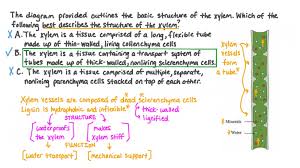 The diagram provided outlines the basic structure of the xylem. Which of the
following best describes the structure of the xylem?
X A. The xylem is a tissue comprised of a long, flexible tube
made up of thin-walled, living collenchyma cells
✓ B. The xylem is a tissue containing a transport system of
tubes made up of thick-walled, nonliving sclerenchyma cells.
X C. The xylem is a tissue comprised of multiple, separate,
nonliving parenchyma cells stacked on top of each other.
Xylem vessels are composed of dead sclerenchyma cells
Lignin is hydrophobic and inflexible
thick-walled
lignified
STRUCTURE
waterproofs
the xylem
makes
xylem stiff
FUNCTION
water transport
mechanical support
xylem
vessels
form
a tube
Minerals
Water